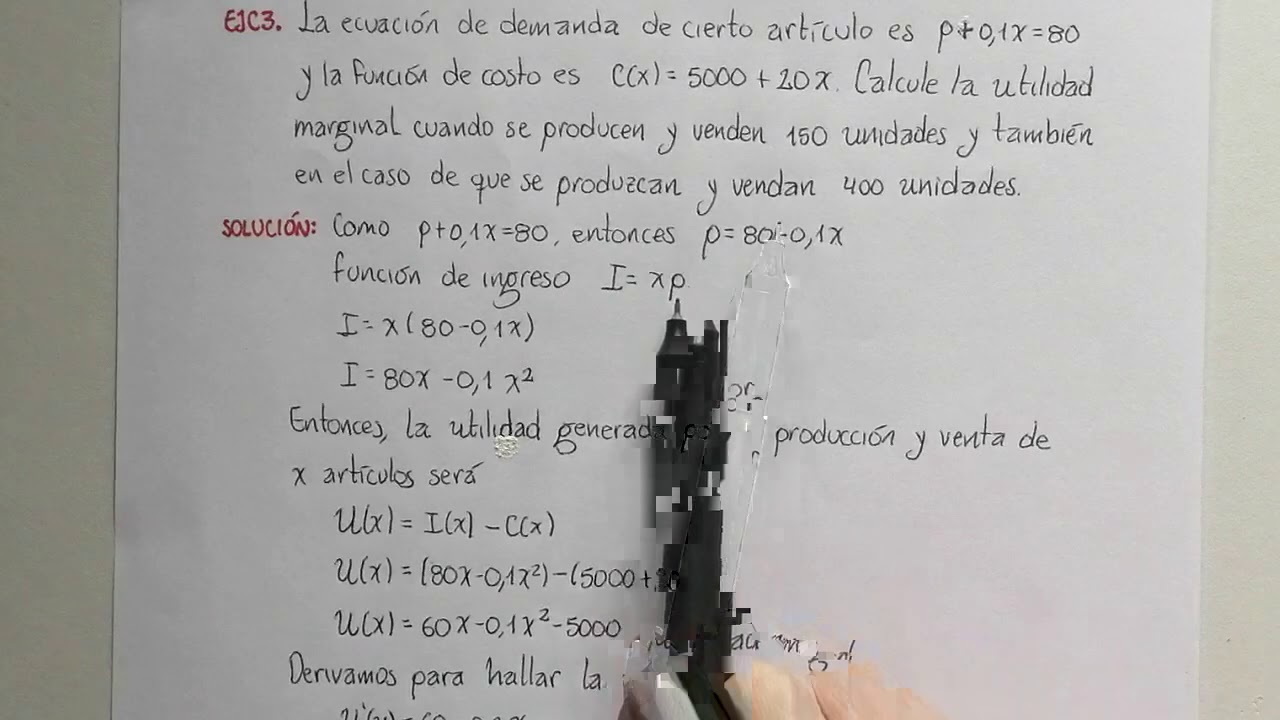 EJC3. La ecuación de demanda de cierto artículo es p+0,1x=80
y la función de costo es C(x) = 5000 + 20x. Calcule la utilidad
marginal cuando se producen y venden 150 unidades y también
en el caso de que se produzcan y vendan 400 unidades.
SOLUCIÓN: Como p+0,1x=80, entonces p=80-0,1x
función de ingreso I= xp
I= x(80-0,1x)
I= 80x -0,1 x²
Entonces, la utilidad generada producción y venta de
x artículos será
U(x) = I(x) - C(x)
U(x) = (80x-0,1x²)-(5000+
U(x) = 60x-0,1x²-5000
Derivamos para hallar la